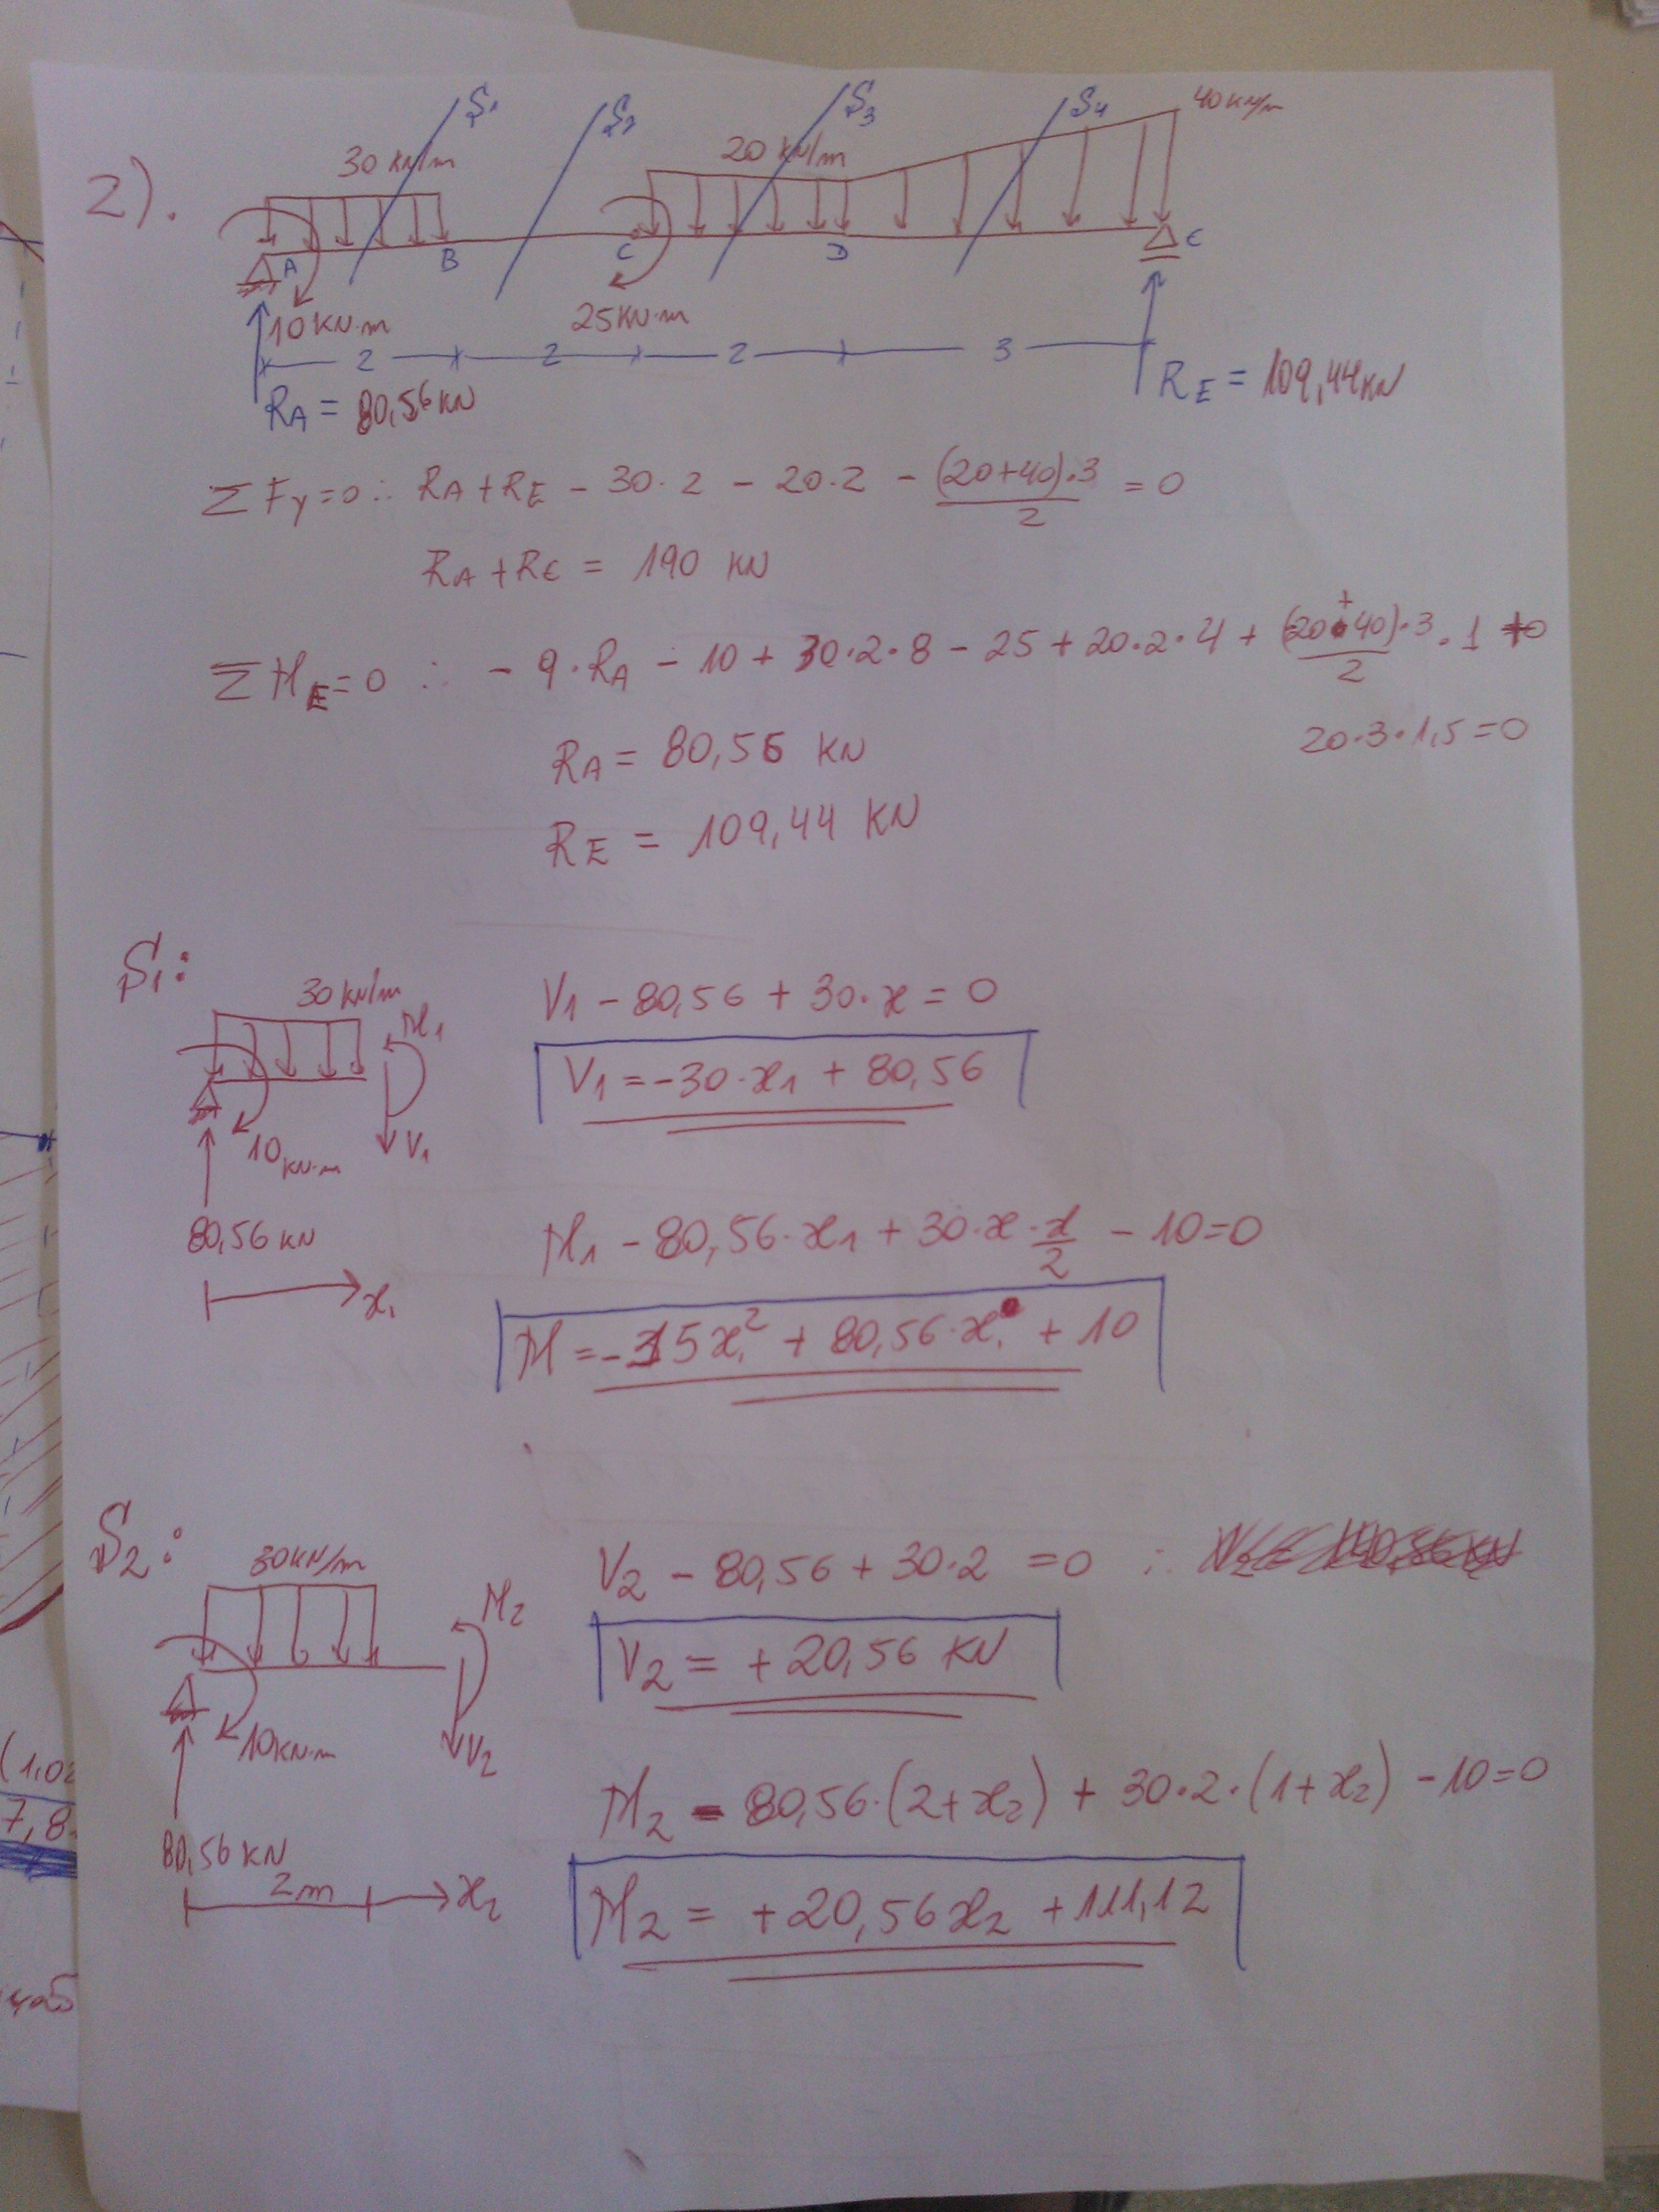 2).
S1
S2
S3
S4
40 KN/m
30 KN/m
20 KN/m
A
B
C
D
E
10 KN·m
25 KN·m
2
2
2
3
RA = 80,56 KN
RE = 109,44 KN
ΣFy=0 ∴ RA + RE - 30·2 - 20·2 - (20+40)·3/2 = 0
RA + RE = 190 KN
ΣME=0 ∴ -9·RA - 10 + 30·2·8 - 25 + 20·2·4 + (20+40)·3/2 · 1 +
20·3·1,5=0
RA = 80,56 KN
RE = 109,44 KN
S1:
30 KN/m
M1
10 KN·m
V1
80,56 KN
x1
V1 - 80,56 + 30·x = 0
V1 = -30·x1 + 80,56
M1 - 80,56·x1 + 30·x·x/2 - 10=0
M = -15x1² + 80,56·x1 + 10
S2:
30KN/m
M2
10KN·m
V2
80,56 KN
2m
x2
V2 - 80,56 + 30·2 = 0 ∴
V2 = +20,56 KN
M2 - 80,56·(2+x2) + 30·2·(1+x2) - 10=0
M2 = +20,56x2 + 111,12
(1,02
7,8